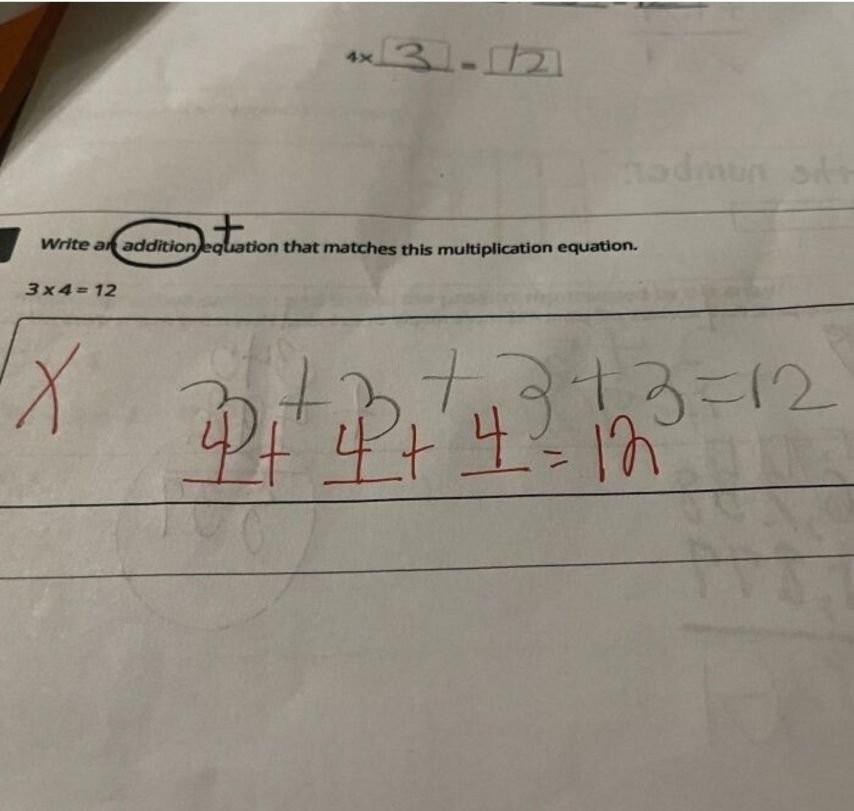 4× 3 = 12
the number
+
Write an addition equation that matches this multiplication equation.
3 x 4 = 12
X 3 + 3 + 3 + 3 = 12
4 + 4 + 4 = 12